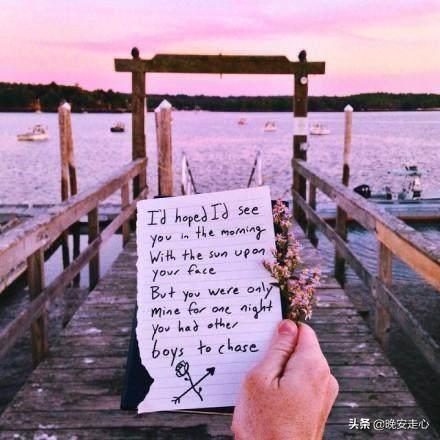 I'd hoped I'd see
you in the morning
With the sun upon
your face
But you were only
mine for one night
you had other
boys to chase
头条 @晚安走心